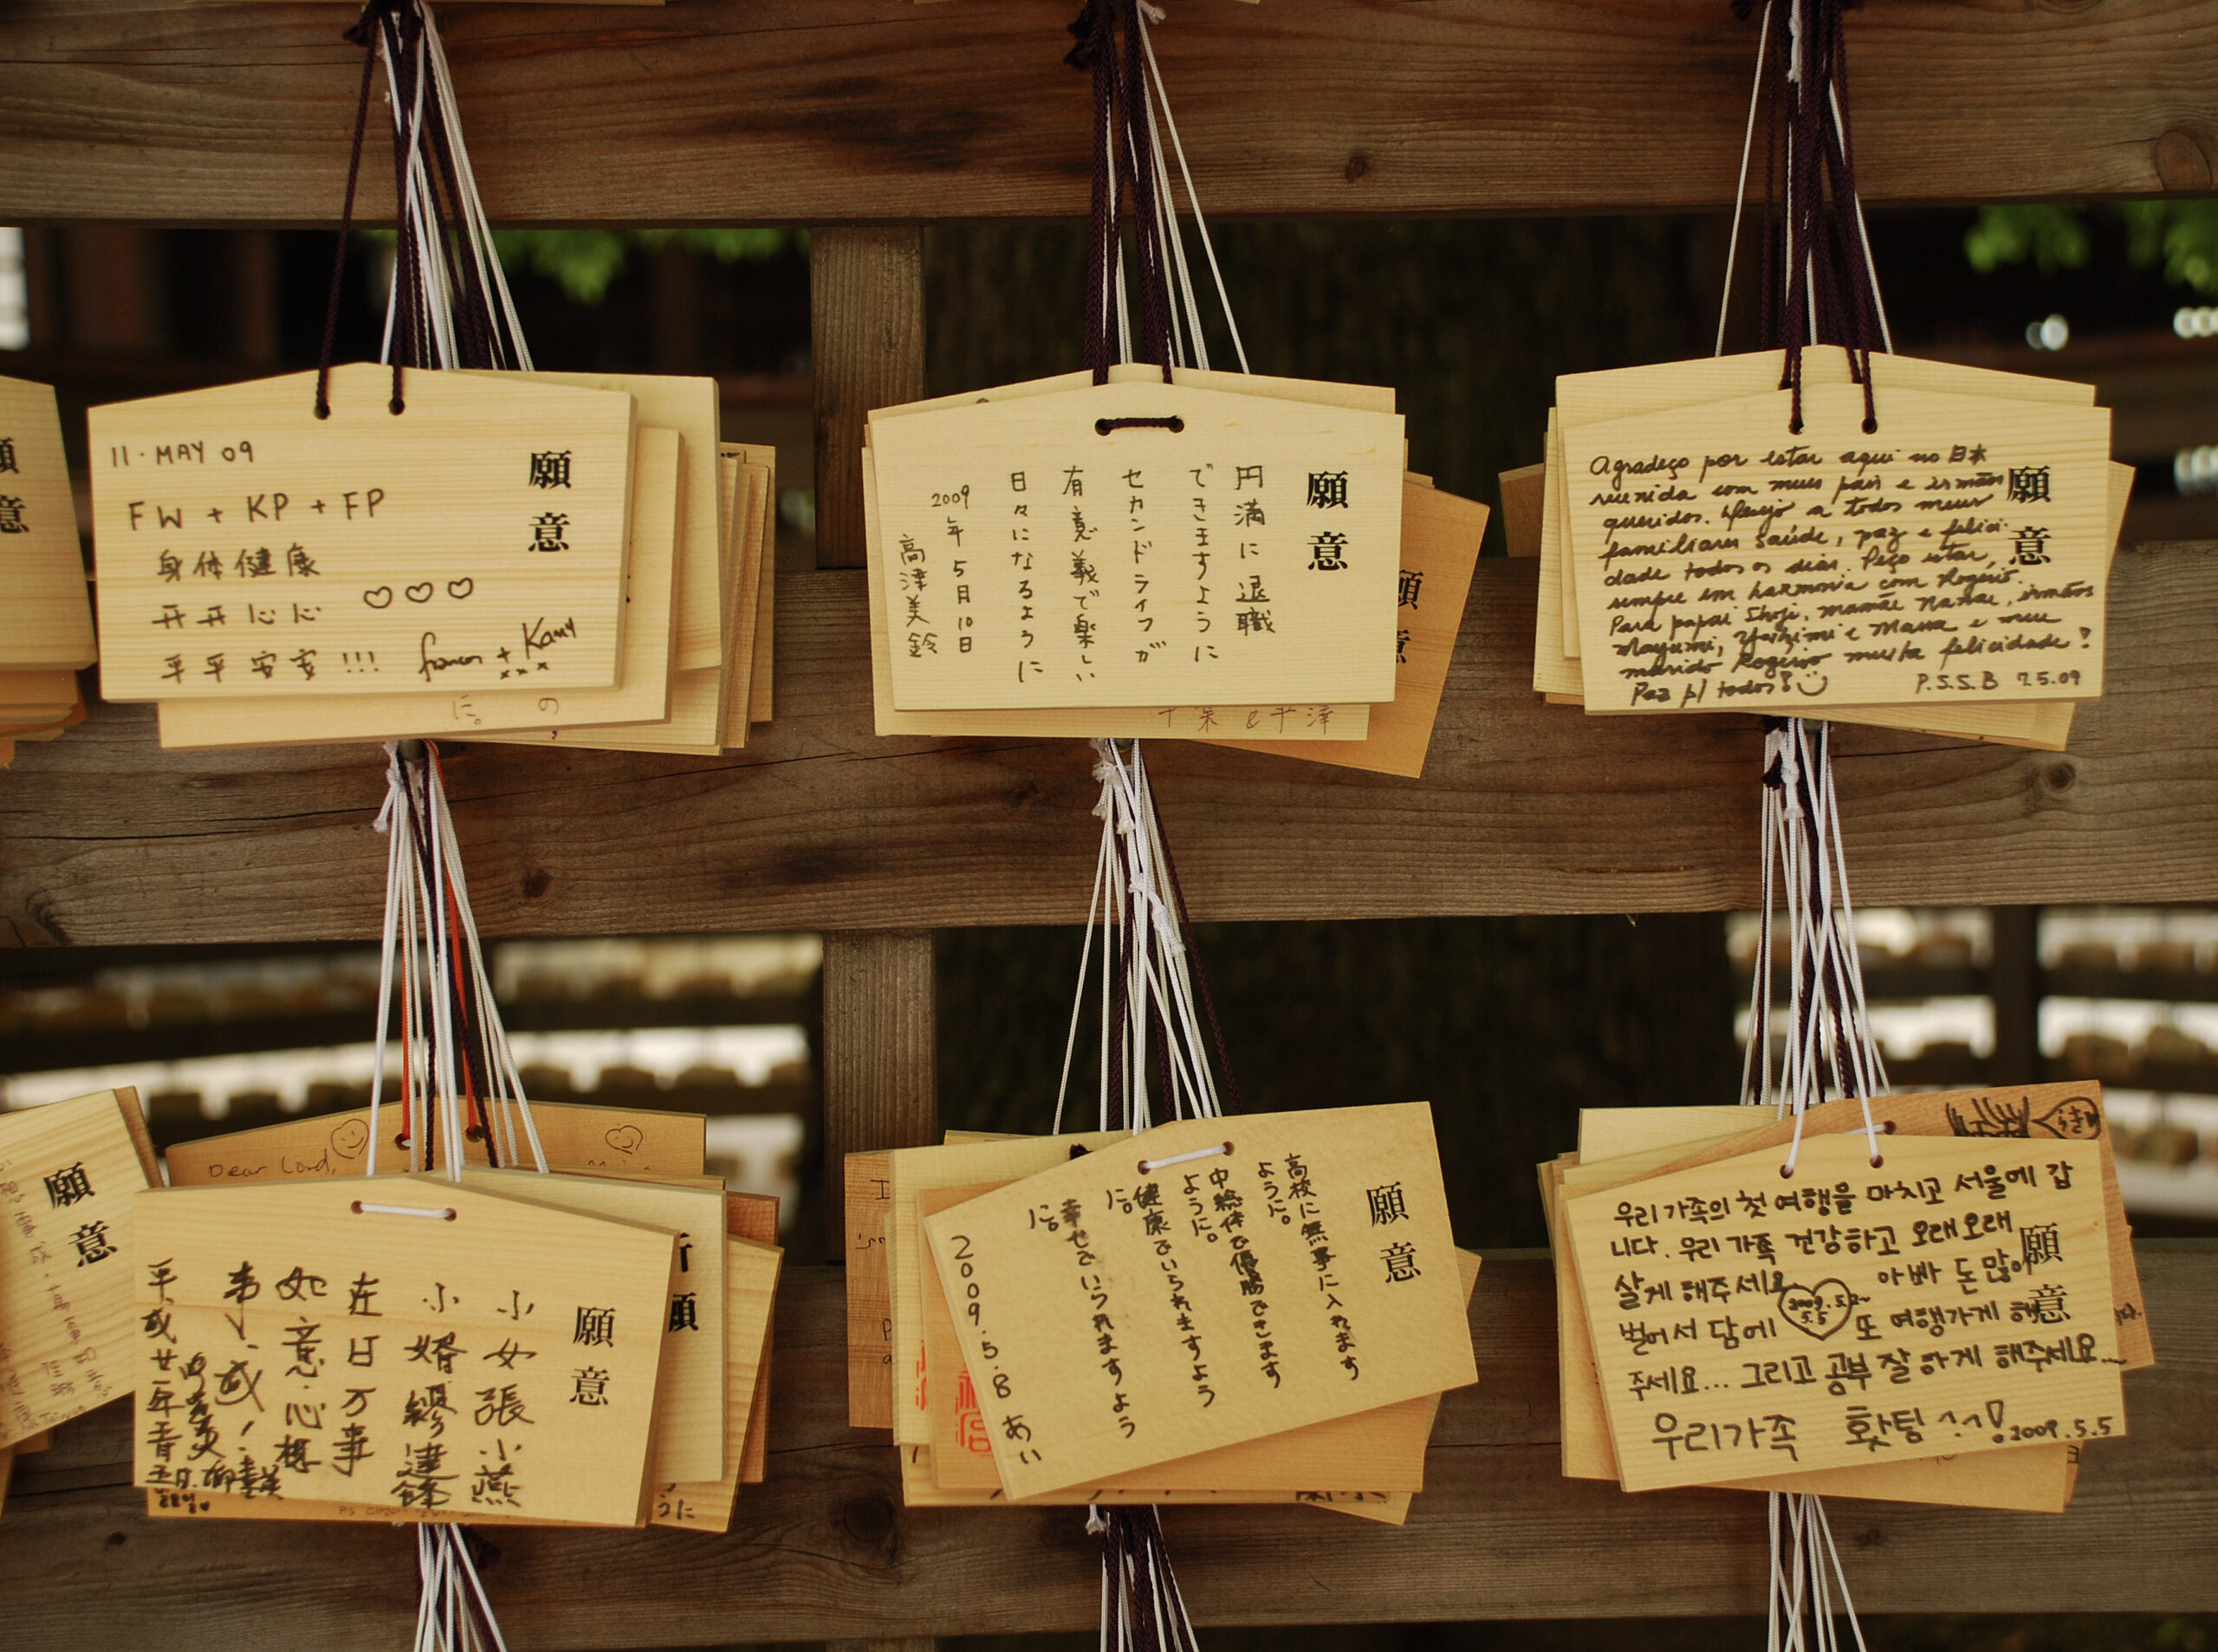 願意
11・MAY 09
FW + KP + FP
身体健康
开开心心 ♡♡♡
平平安安!!!
francis + Kamy
xxx
願意
円満に退職
できますように
セカンドライフが
有意義で楽しい
日々になるように
2009年5月10日
高津美鈴
願意
Agradeço por estar aqui no 日本
reunida com meus pais e irmãos
queridos. Desejo a todos meus
familiares saúde, paz e felici-
dade todos os dias. Peço estar
sempre em harmonia com Rogerio.
Para papai Shoji, mamãe Nanae, irmãos
Mayumi, e Massa e meu
marido Rogerio muita felicidade!
Paz p/ todos!
P.S.S.B 7.5.09
願意
願意
願意
Dear Lord,
願意
小女張小燕
小婿繆建鋒
在日万事
如意心想
事成!
平成廿一年
願
うに
願意
高校に無事に入れます
ように。
中総体で優勝できます
ように。
健康でいられますよう
に。
幸せでいられますよう
に。
2009.5.8 あい
願意
우리가족의 첫 여행을 마치고 서울에 갑
니다. 우리 가족 건강하고 오래오래
살게 해주세요 아빠 돈 많이
벌어서 담에 또 여행가게 해
주세요... 그리고 공부 잘 하게 해주세요...
2009.5.2~
5.5
우리가족 홧팅 ^-^!
2009.5.5